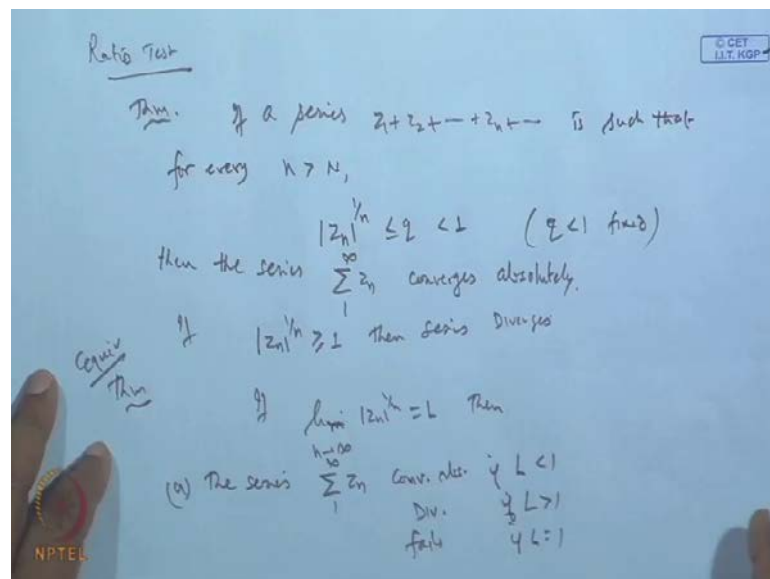 Ratio Test
© CET
I.I.T. KGP
Thm. If a series z₁ + z₂ + --- + zₙ + --- is such that
for every n > N,
|zₙ|^{1/n} ≤ q < 1 (q < 1 fixed)
then the series ∑_{1}^{∞} zₙ converges absolutely.
If |zₙ|^{1/n} ≥ 1 then series Diverges
Equiv
Thm If lim_{n→∞} |zₙ|^{1/n} = L Then
(a) The series ∑_{1}^{∞} zₙ Conv. abs. if L < 1
Div. if L > 1
fails if L = 1
NPTEL